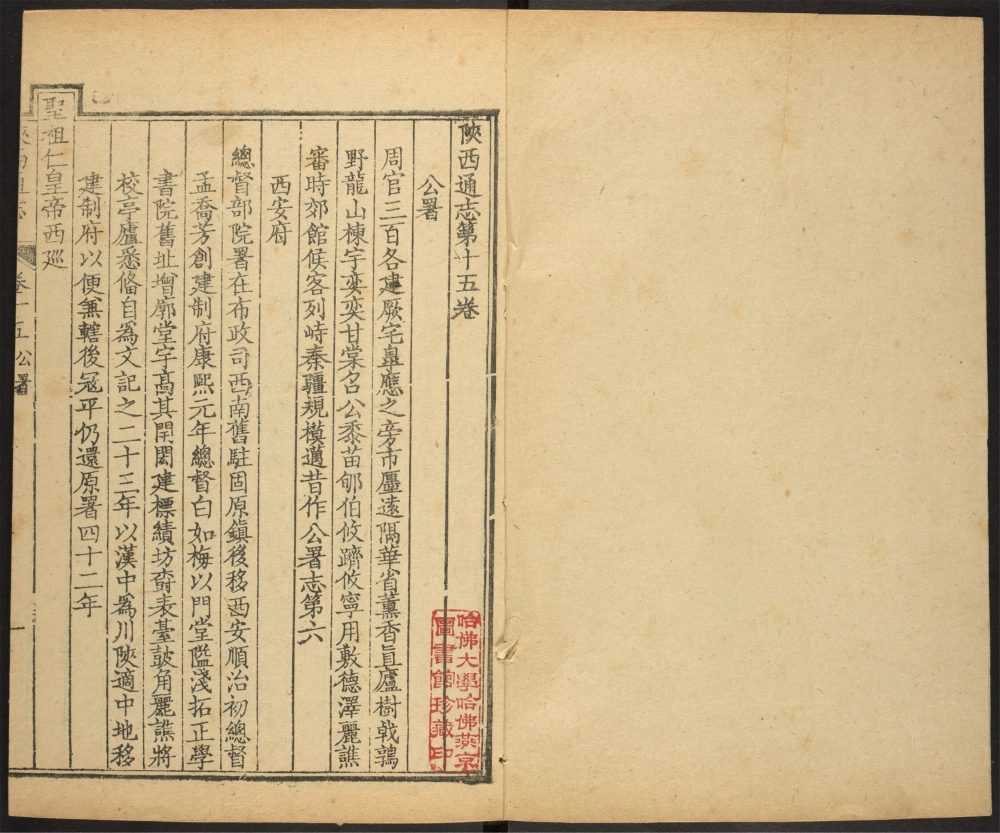 陝西通志第十五卷
公署
周官三百各建厥宅臯應之旁市廛遠隔華省薰香直廬樹戟鶉
野龍山棟宇奕奕甘棠召公黍苗郇伯攸躋攸寧用敷德澤麗譙
審時郊館候客列峙秦疆規模邁昔作公署志第六
西安府
總督部院署在布政司西南舊駐固原鎮後移西安順治初總督
孟喬芳創建制府康熙元年總督白如梅以門堂隘淺拓正學
書院舊址增廓堂宇高其閈閎建標績坊齋表臺鼓角麗譙將
校亭廬悉備自爲文記之二十三年以漢中爲川陝適中地移
建制府以便兼轄後冦平仍還原署四十二年
聖祖仁皇帝西廵
陝西通志 卷十五 公署 一
哈佛大學哈佛燕京
圖書館珍藏印